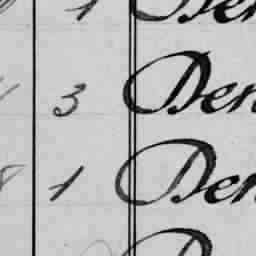 1 Den
3 Den
8 1 Den